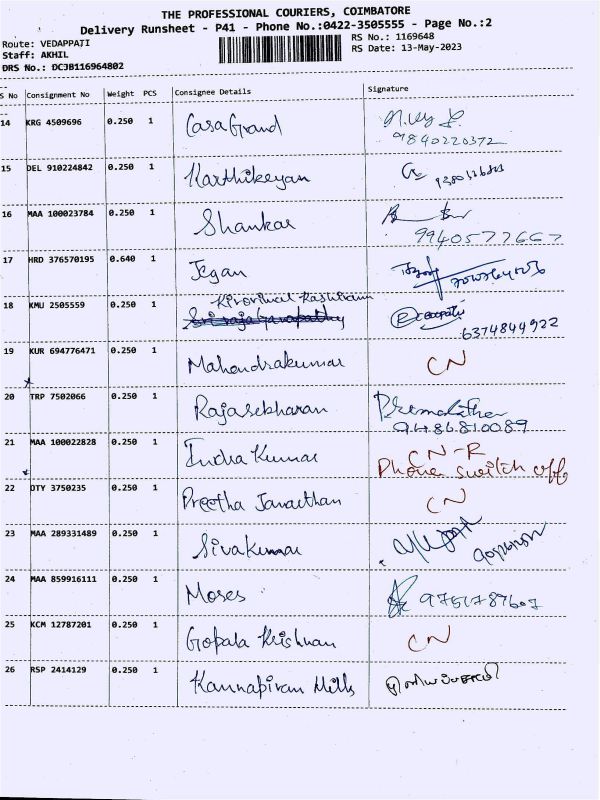 THE PROFESSIONAL COURIERS, COIMBATORE
Delivery Runsheet - P41 - Phone No.:0422-3505555 - Page No.:2
Route: VEDAPPATI
RS No.: 1169648
Staff: AKHIL
RS Date: 13-May-2023
DRS No.: DCJB116964802
S No Consignment No Weight PCS Consignee Details Signature
14 KRG 4509696 0.250 1 CasaGrand
9840220372
15 DEL 910224842 0.250 1 Karthikeyan
16 MAA 100023784 0.250 1 Shankar
9940577667
17 HRD 376570195 0.640 1 Jegan
18 KMU 2505559 0.250 1
6374844922
19 KUR 694776471 0.250 1 Mahendrakumar CN
20 TRP 7502066 0.250 1 Rajasekharan
9486810089
21 MAA 100022828 0.250 1 Indra Kumar CN-R
Phone switch off
22 OTY 3750235 0.250 1 Preetha CN
23 MAA 289331489 0.250 1 Sivakumar
24 MAA 859916111 0.250 1 Moses 9751787607
25 KCM 12787201 0.250 1 Gopala Krishnan CN
26 RSP 2414129 0.250 1 Kannapiran Mills